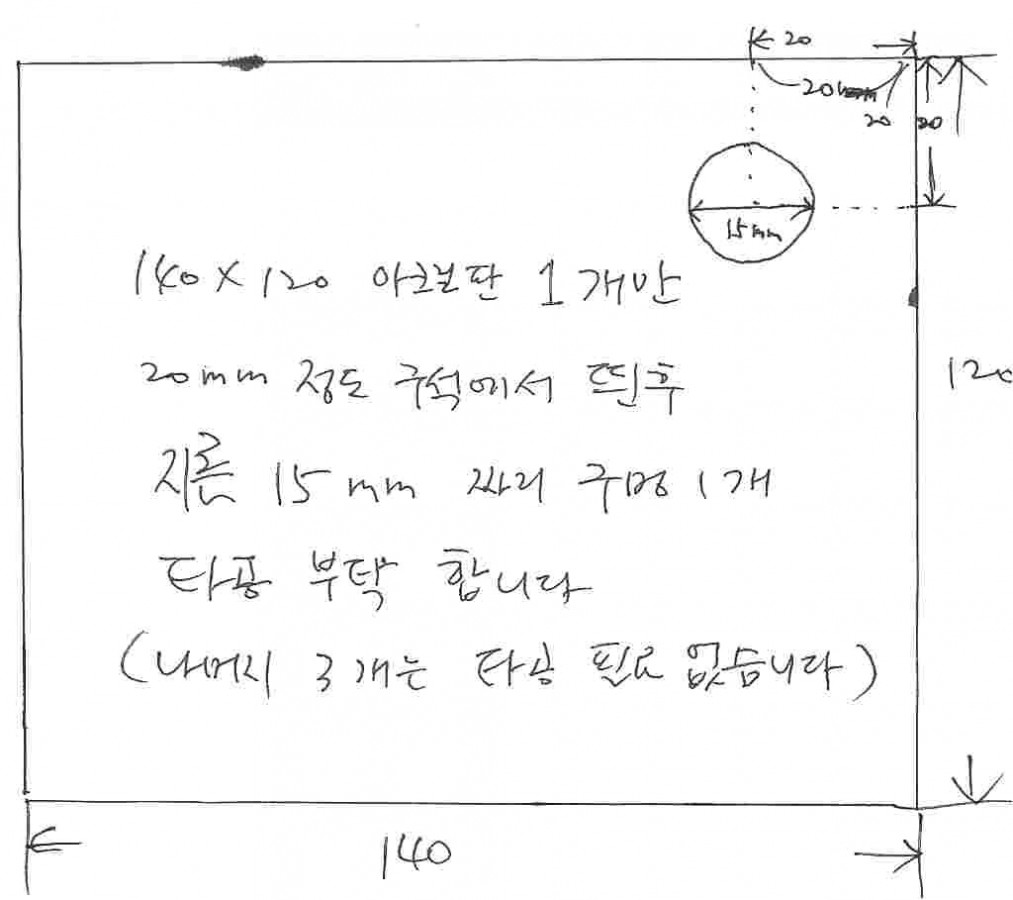 20
20mm
20 20
15mm
140 X 120 아크릴판 1개만
20mm 정도 구석에서 띈후
지름 15mm 짜리 구멍 1개
타공 부탁 합니다
(나머지 3개는 타공 필요 없습니다)
120
140